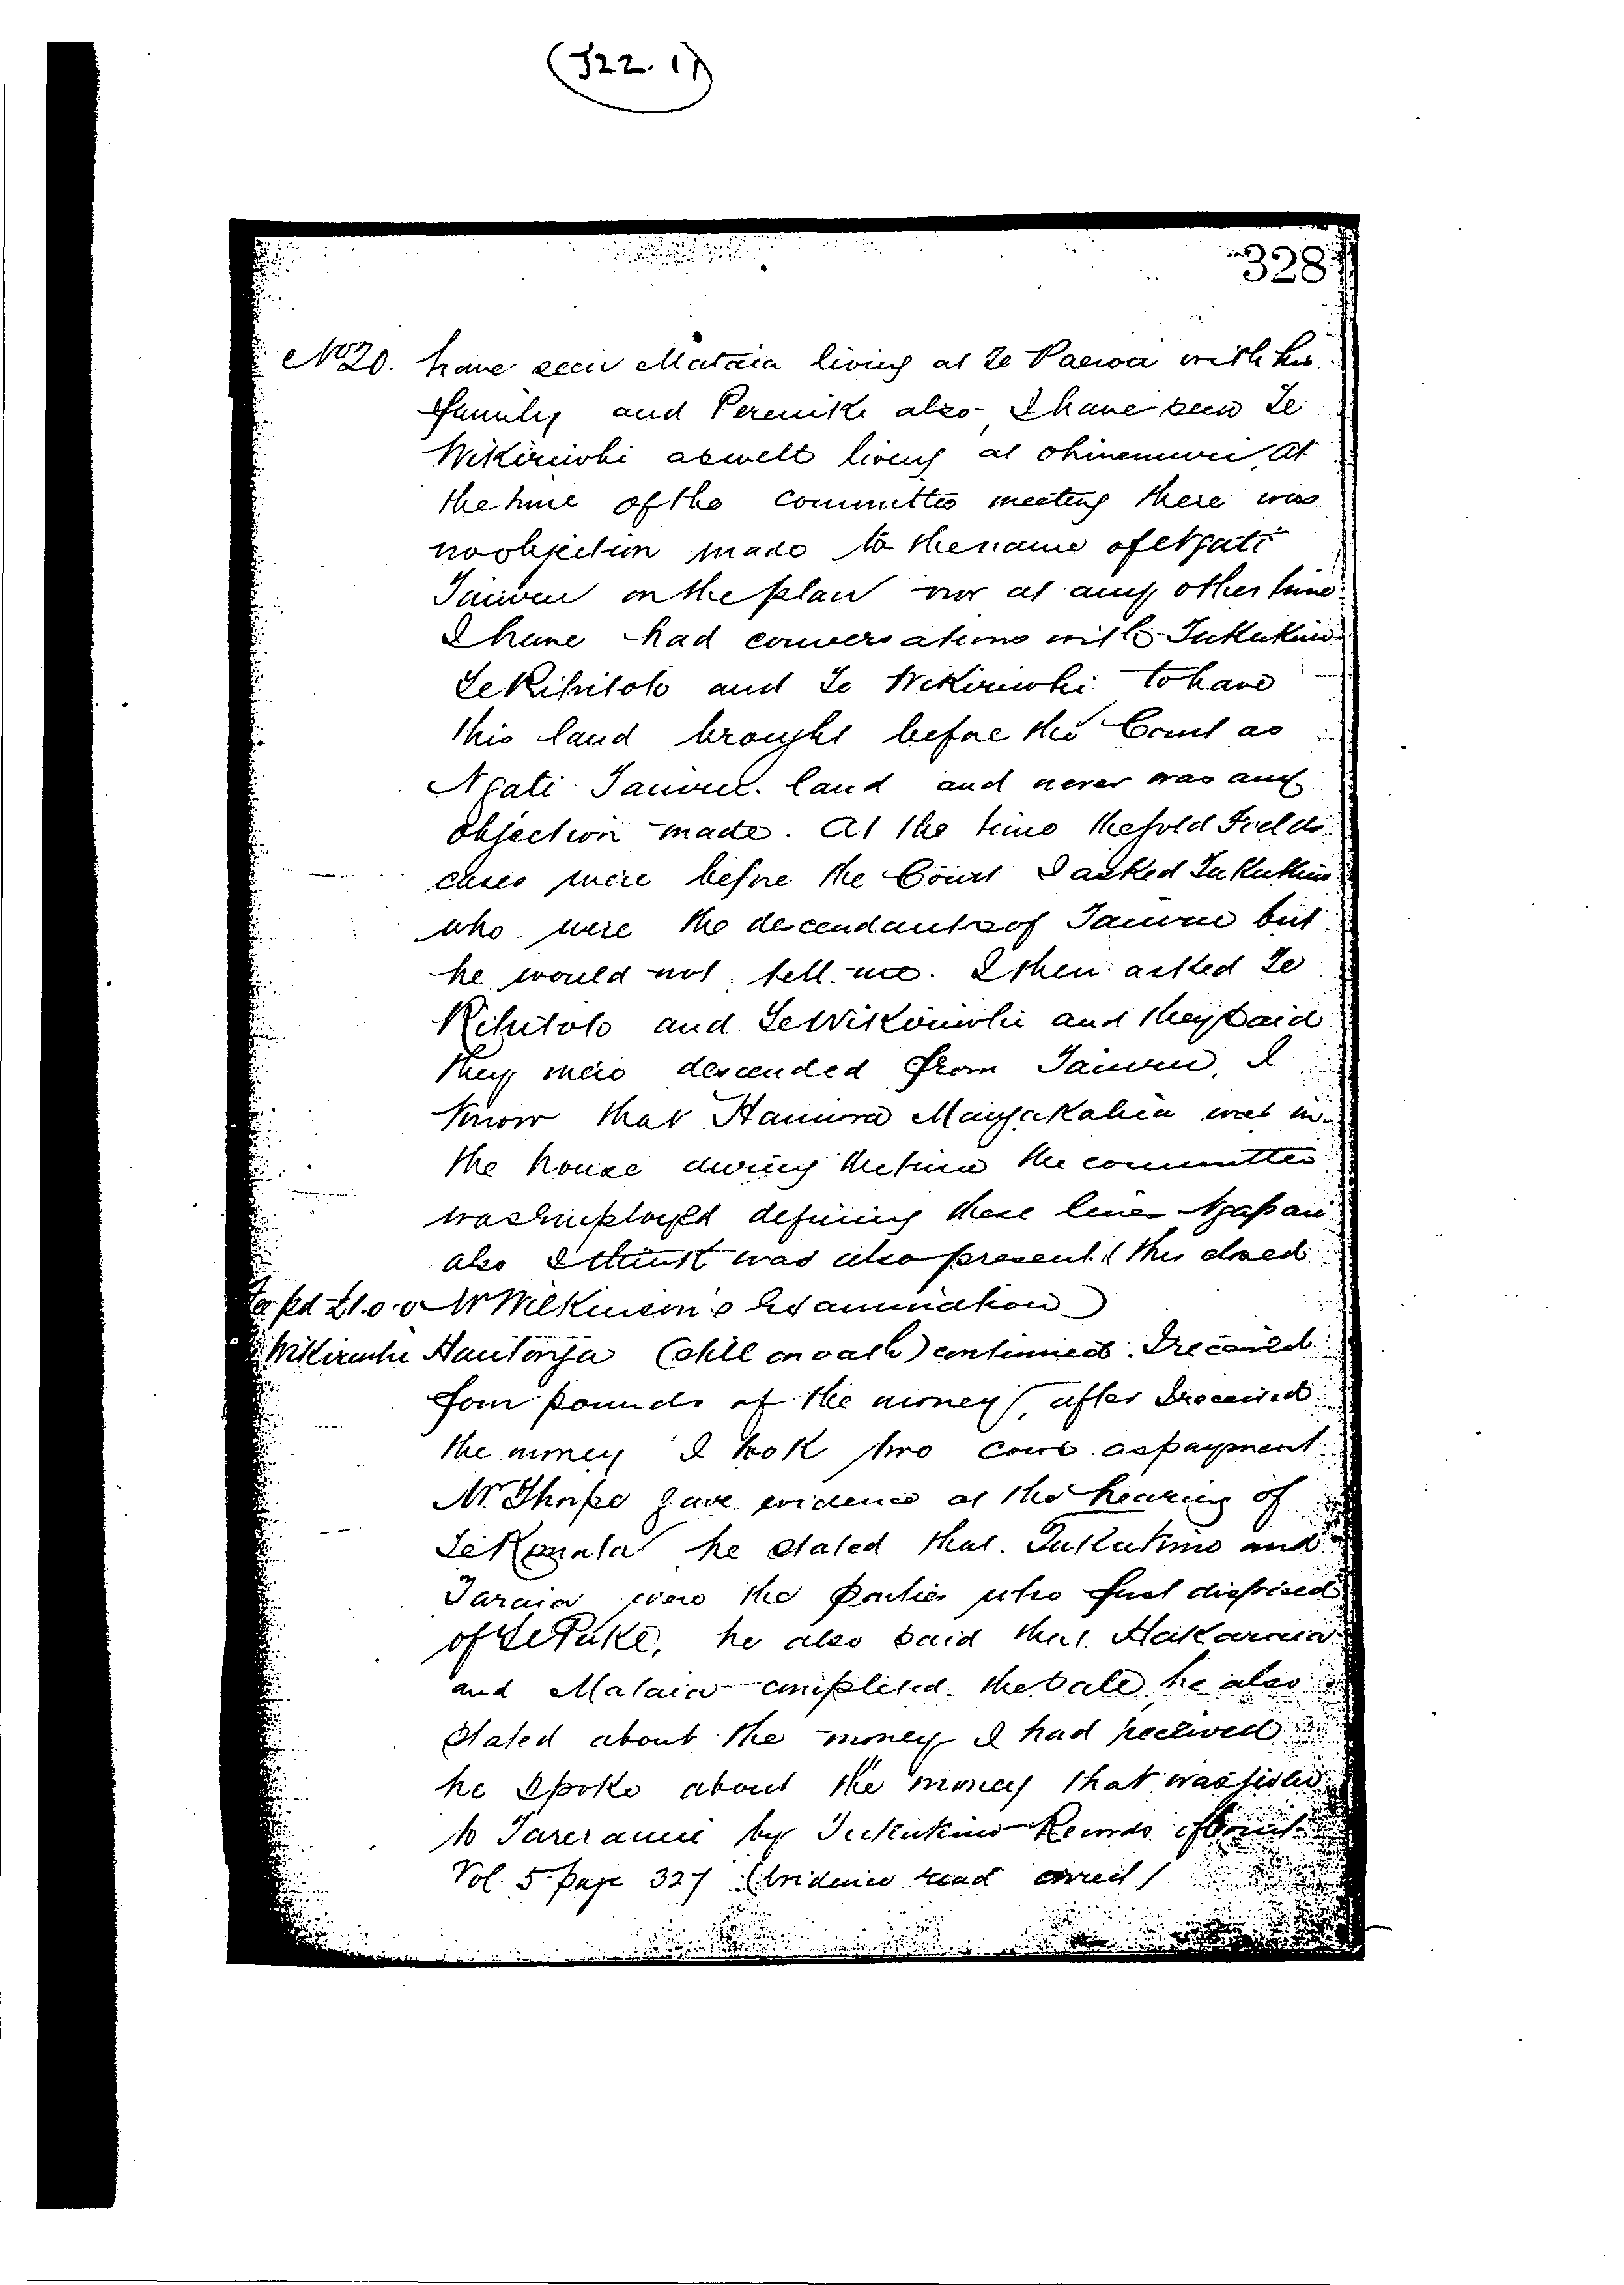 (J22. 1)
328
No 20. have seen Mataia living at Te Paeroa with his
family and Pereniki also I have seen Te
Wikiriwhi aswell living at Ohinemuri, At
the time of the committee meeting there was
no objection made to the name of Ngati
Taiuru on the plan nor at any other time
I have had conversations with Tukukino
Te Rihitoto and Te Wikiriwhi to have
this land brought before the Court as
Ngati Taiuru land and never was any
objection made. At the time the Gold Fields
cases were before the Court I asked Tukukino
who were the descendants of Taiuru but
he would not tell me. I then asked Te
Rihitoto and Te Wikiriwhi and they said
they were descended from Taiuru, I
know that Hamiora Mangakahia was in
the house during the time the committee
was employed defining these lines Ngapari
also I think was also present (this closed
Fee pd £1.0.0 Mr Wilkinson's Examination)
Wikiriwhi Hautonga (still on oath) continued. I received
four pounds of the money, after I received
the money I took two cows as payment
Mr Thorpe gave evidence at the hearing of
Te he stated that Tukukino and
Taraia were the parties who first disposed
of Te Puke, he also said that Hakaraia
and Mataia completed the sale, he also
stated about the money I had received
he spoke about the money that was
to Tareranui by Tukukino Records of Court
Vol. 5 page 327 (Evidence read